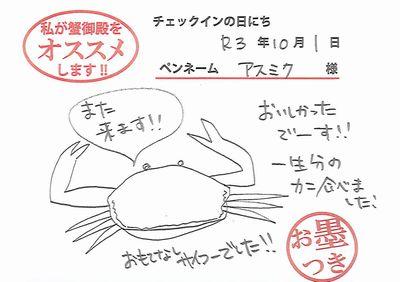 私が蟹御殿を
オススメ
します!!
チェックインの日にち
R3年10月1日
ペンネーム アスミク 様
また
来ます!!
おいしかった
でーす!!
一生分の
カニ食べました!
おもてなし サイコーでした!!
お墨
つき